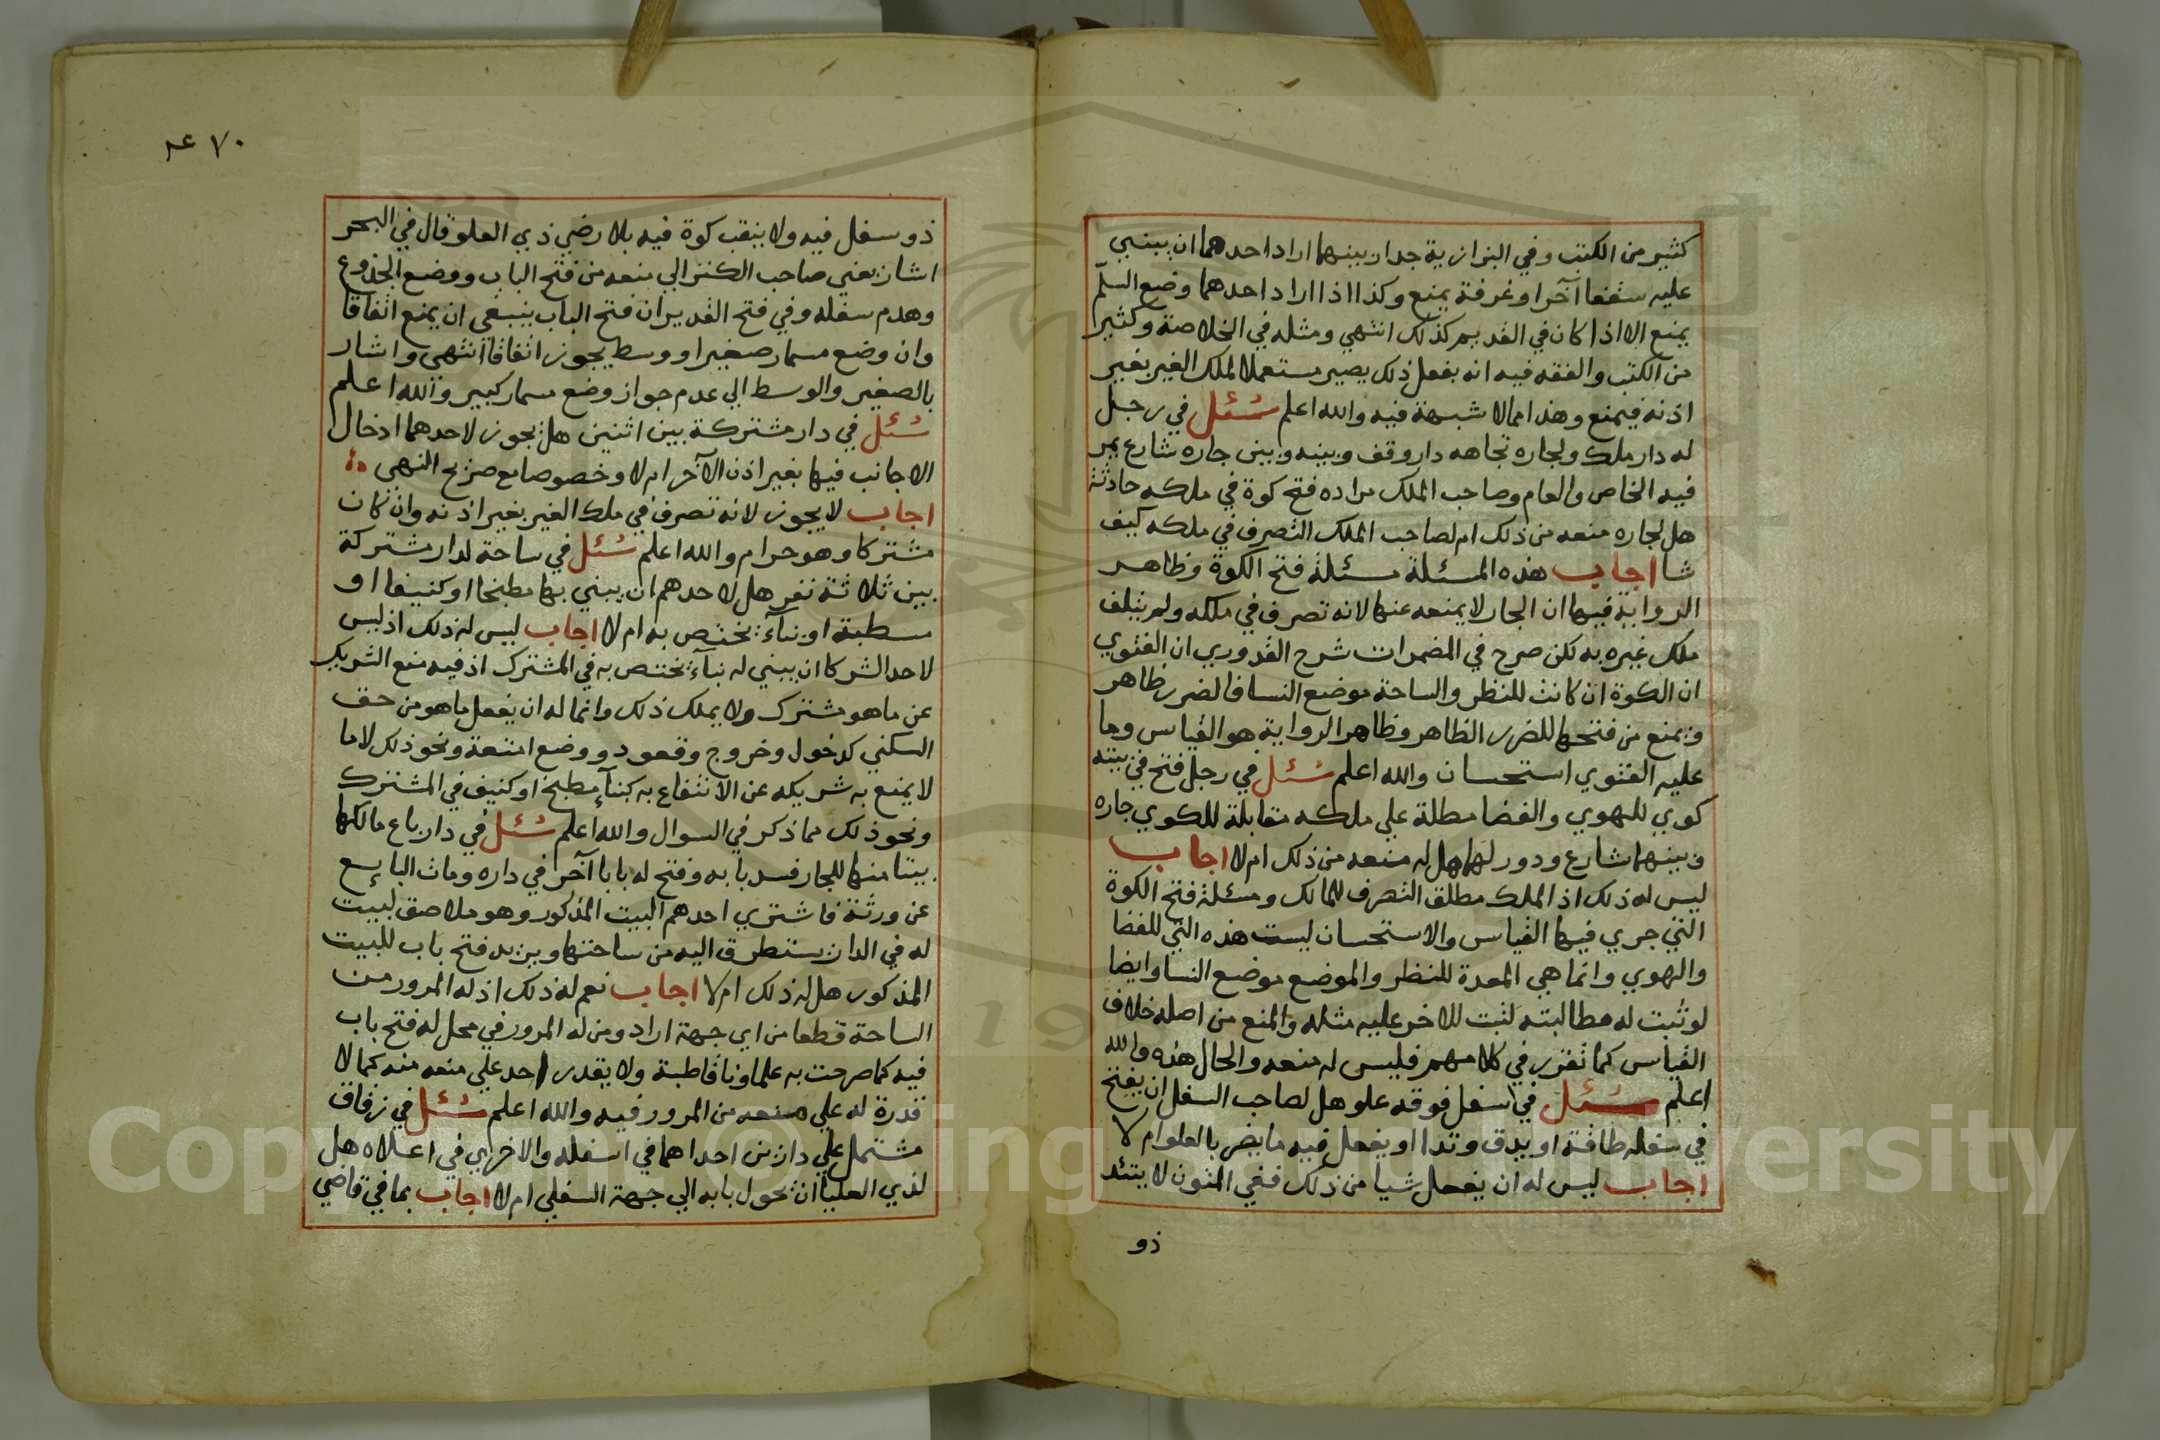 كثير من الكتب وفي البزازية جدار بينهما اراد احدهما ان يبني
عليه سقفا آخر او غرفة يمنع وكذا اذا اراد احدهما وضع السلم
يمنع الا اذا كان في القديم كذلك انتهي ومثله في الخلاصة وكثير
من الكتب والفقه فيه انه بفعل ذلك يصير مستعملا لملك الغير بغير
اذنه فيمنع وهذا مما لا شبهة فيه والله اعلم سئل في رجل
له دار ملك ولجاره تجاهه دار وقف وبينه وبين جاره شارع يمر
فيه الخاص والعام وصاحب الملك مراده فتح كوة في ملكه حادثة
هل لجاره منعه من ذلك ام لصاحب الملك التصرف في ملكه كيف
شا اجاب هذه المسئلة مسئلة فتح الكوة وظاهر
الرواية فيها ان الجار لا يمنعه عنها لانه تصرف في ملكه ولم يتلف
ملك غيره به لكن صرح في المضمرات شرح القدوري ان الفتوي
ان الكوة ان كانت للنظر والساحة موضع النسا فالضرر ظاهر
ويمنع من فتحها للضرر الظاهر وظاهر الرواية هو القياس وما
عليه الفتوي استحسان والله اعلم سئل في رجل فتح في بيته
كوي للهوي والفضا مطلة علي ملكه مقابلة للكوي جاره
وبينهما شارع ودور لهما هل له منعه من ذلك ام لا اجاب
ليس له ذلك اذ الملك مطلق التصرف للمالك ومسئلة فتح الكوة
التي جري فيها القياس والاستحسان ليست هذه التي للفضا
والهوي وانما هي المعدة للنظر والموضع موضع النسا وايضا
لو ثبت له مطالبته لثبت للاخر عليه مثله والمنع من اصله خلاف
القياس كما تقرر في كلامهم فليس له منعه والحال هذه والله
اعلم سئل في سفل فوقه علو هل لصاحب السفل ان يفتح
في سفله طاقة او يدق وتدا او يفعل فيه ما يضر بالعلو ام لا
اجاب ليس له ان يفعل شيا من ذلك ففي المتون لا يتد
ذو
٧٠
ذو سفل فيه ولا ينقب كوة فيه بلا رضي ذي العلو قال في البحر
اشار يعني صاحب الكنز الي منعه من فتح الباب ووضع الجذوع
وهدم سفله وفي فتح القدير ان فتح الباب ينبغي ان يمنع اتفاقا
وان وضع مسمار صغير او وسط يجوز اتفاقا انتهي واشار
بالصغير والوسط الي عدم جواز وضع مسمار كبير والله اعلم
سئل في دار مشتركة بين اثنين هل يجوز لاحدهما ادخال
الاجانب فيها بغير اذن الآخر ام لا وخصوصا مع صريح النهي
اجاب لا يجوز لانه تصرف في ملك الغير بغير اذنه وان كان
مشتركا وهو حرام والله اعلم سئل في ساحة لدار مشتركة
بين ثلاثة نفر هل لاحدهم ان يبني بها مطبخا او كنيفا او
مسطبة او بناء يختص به ام لا اجاب ليس له ذلك اذ ليس
لاحد الشركا ان يبني له بناء يختص به في المشترك اذ فيه منع الشريك
عن ما هو مشترك ولا يملك ذلك وانما له ان يفعل ما هو من حق
السكني كدخول وخروج وقعود ووضع امتعة ونحو ذلك لا ما
لا يمنع به شريكه عن الانتفاع به كبناء مطبخ او كنيف في المشترك
ونحو ذلك مما ذكر في السوال والله اعلم سئل في دار باع مالكها
بيتا منها للجار فسد بابه وفتح له بابا آخر في داره ومات البايع
عن ورثة فاشتري احدهم البيت المذكور وهو ملاصق لبيت
له في الدار يستطرق اليه من ساحتها ويريد فتح باب للبيت
المذكور هل له ذلك ام لا اجاب نعم له ذلك اذ له المرور من
الساحة قطعا من اي جهة اراد ومن له المرور في محل له فتح باب
فيه كما صرحت به علماونا قاطبة ولا يقدر احد علي منعه منه كما لا
قدرة له علي منعه من المرور فيه والله اعلم سئل في زقاق
مشتمل علي دارين احداهما في اسفله والاخري في اعلاه هل
لذي العليا ان يحول بابه الي جهة السفلي ام لا اجاب بما في قاضي
Copyright © King Saud University